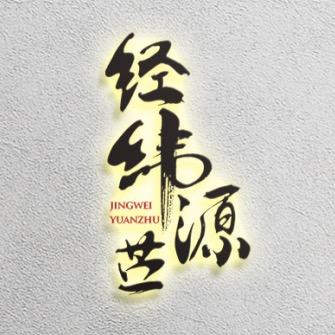 经纬源苎
JINGWEI
YUANZHU